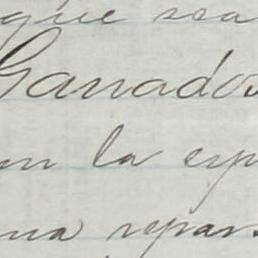 que sea
Ganados
en la esp
una repars